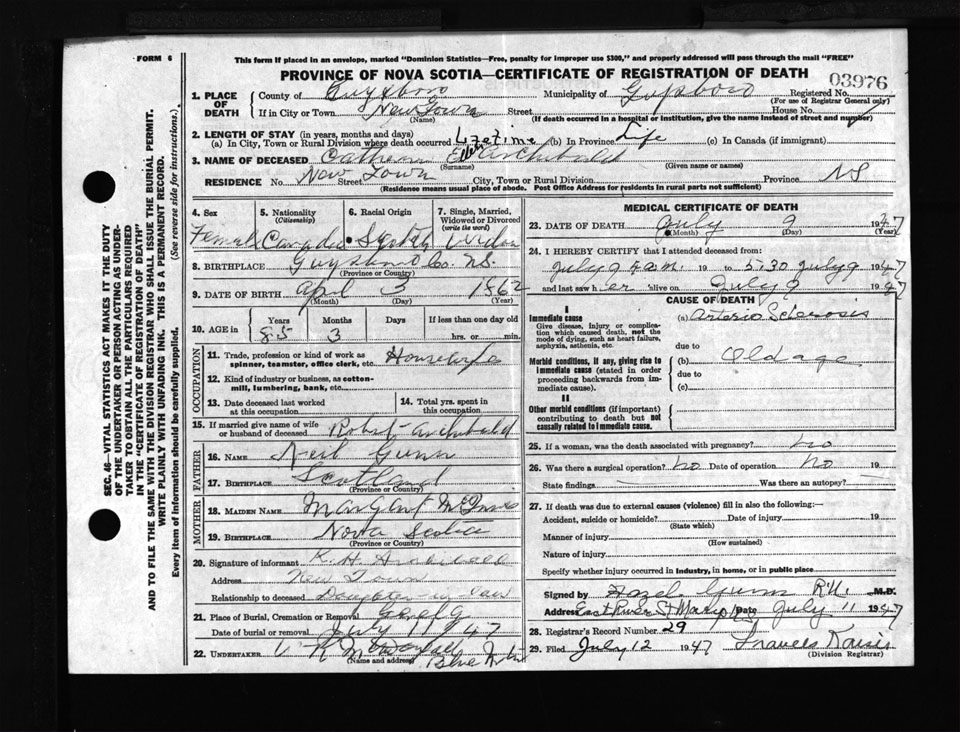 FORM 6
This form if placed in an envelope, marked "Dominion Statistics—Free, penalty for improper use $300," and properly addressed will pass through the mail "FREE"
PROVINCE OF NOVA SCOTIA—CERTIFICATE OF REGISTRATION OF DEATH
03976
1. PLACE OF DEATH
County of Guysboro Municipality of Guysboro Registered No.
(For use of Registrar General only)
If in City or Town New Town Street House No.
(Name) (If death occurred in a hospital or institution, give the name instead of street and number)
2. LENGTH OF STAY (in years, months and days)
(a) In City, Town or Rural Division where death occurred Lifetime (b) In Province Life (c) In Canada (if immigrant)
3. NAME OF DECEASED Archibald
(Surname) (Given name or names)
RESIDENCE No. New Town Street City, Town or Rural Division Province NS
(Residence means usual place of abode. Post Office Address for residents in rural parts not sufficient)
4. Sex
Female
5. Nationality
(Citizenship)
6. Racial Origin
7. Single, Married, Widowed or Divorced
(write the word)
8. BIRTHPLACE Guysboro Co. NS.
(Province or Country)
9. DATE OF BIRTH April 3 1862
(Month) (Day) (Year)
10. AGE in
Years Months Days If less than one day old
85 3 hrs. or min.
OCCUPATION
11. Trade, profession or kind of work as spinner, teamster, office clerk, etc. Housewife
12. Kind of industry or business, as cotton-mill, lumbering, bank, etc.
13. Date deceased last worked at this occupation
14. Total yrs. spent in this occupation
15. If married give name of wife or husband of deceased Robert Archibald
FATHER
16. NAME Neil Gunn
17. BIRTHPLACE Scotland
(Province or Country)
MOTHER
18. MAIDEN NAME Margaret
19. BIRTHPLACE Nova Scotia
(Province or Country)
20. Signature of informant K. H. Archibald
Address New Town
Relationship to deceased Daughter in law
21. Place of Burial, Cremation or Removal
Date of burial or removal July 1947
22. UNDERTAKER
(Name and address)
MEDICAL CERTIFICATE OF DEATH
23. DATE OF DEATH July 9 1947
(Month) (Day) (Year)
24. I HEREBY CERTIFY that I attended deceased from:
July 9 am. 19 to 5:30 July 9 1947
and last saw her alive on July 9 1947
CAUSE OF DEATH
I
Immediate cause
Give disease, injury or complication which caused death, not the mode of dying, such as heart failure, asphyxia, asthenia, etc.
(a) Arterio Sclerosis
due to
Morbid conditions, if any, giving rise to immediate cause (stated in order proceeding backwards from immediate cause).
(b) Old age
due to
(c)
II
Other morbid conditions (if important) contributing to death but not causally related to immediate cause.
25. If a woman, was the death associated with pregnancy? no
26. Was there a surgical operation? no Date of operation no 19
State findings Was there an autopsy?
27. If death was due to external causes (violence) fill in also the following:—
Accident, suicide or homicide? Date of injury 19
(State which)
Manner of injury
(How sustained)
Nature of injury
Specify whether injury occurred in industry, in home, or in public place
Signed by Hazel Gunn R.N. M.D.
Address East River St Marys Date July 11 1947
28. Registrar's Record Number 29
29. Filed July 12 1947
(Division Registrar)
SEC. 46—VITAL STATISTICS ACT MAKES IT THE DUTY
OF THE UNDERTAKER OR PERSON ACTING AS UNDER-
TAKER TO OBTAIN ALL THE PARTICULARS REQUIRED
IN THE "CERTIFICATE OF REGISTRATION OF DEATH"
AND TO FILE THE SAME WITH THE DIVISION REGISTRAR WHO SHALL ISSUE THE BURIAL PERMIT.
WRITE PLAINLY WITH UNFADING INK. THIS IS A PERMANENT RECORD.
Every item of information should be carefully supplied. (See reverse side for instructions.)